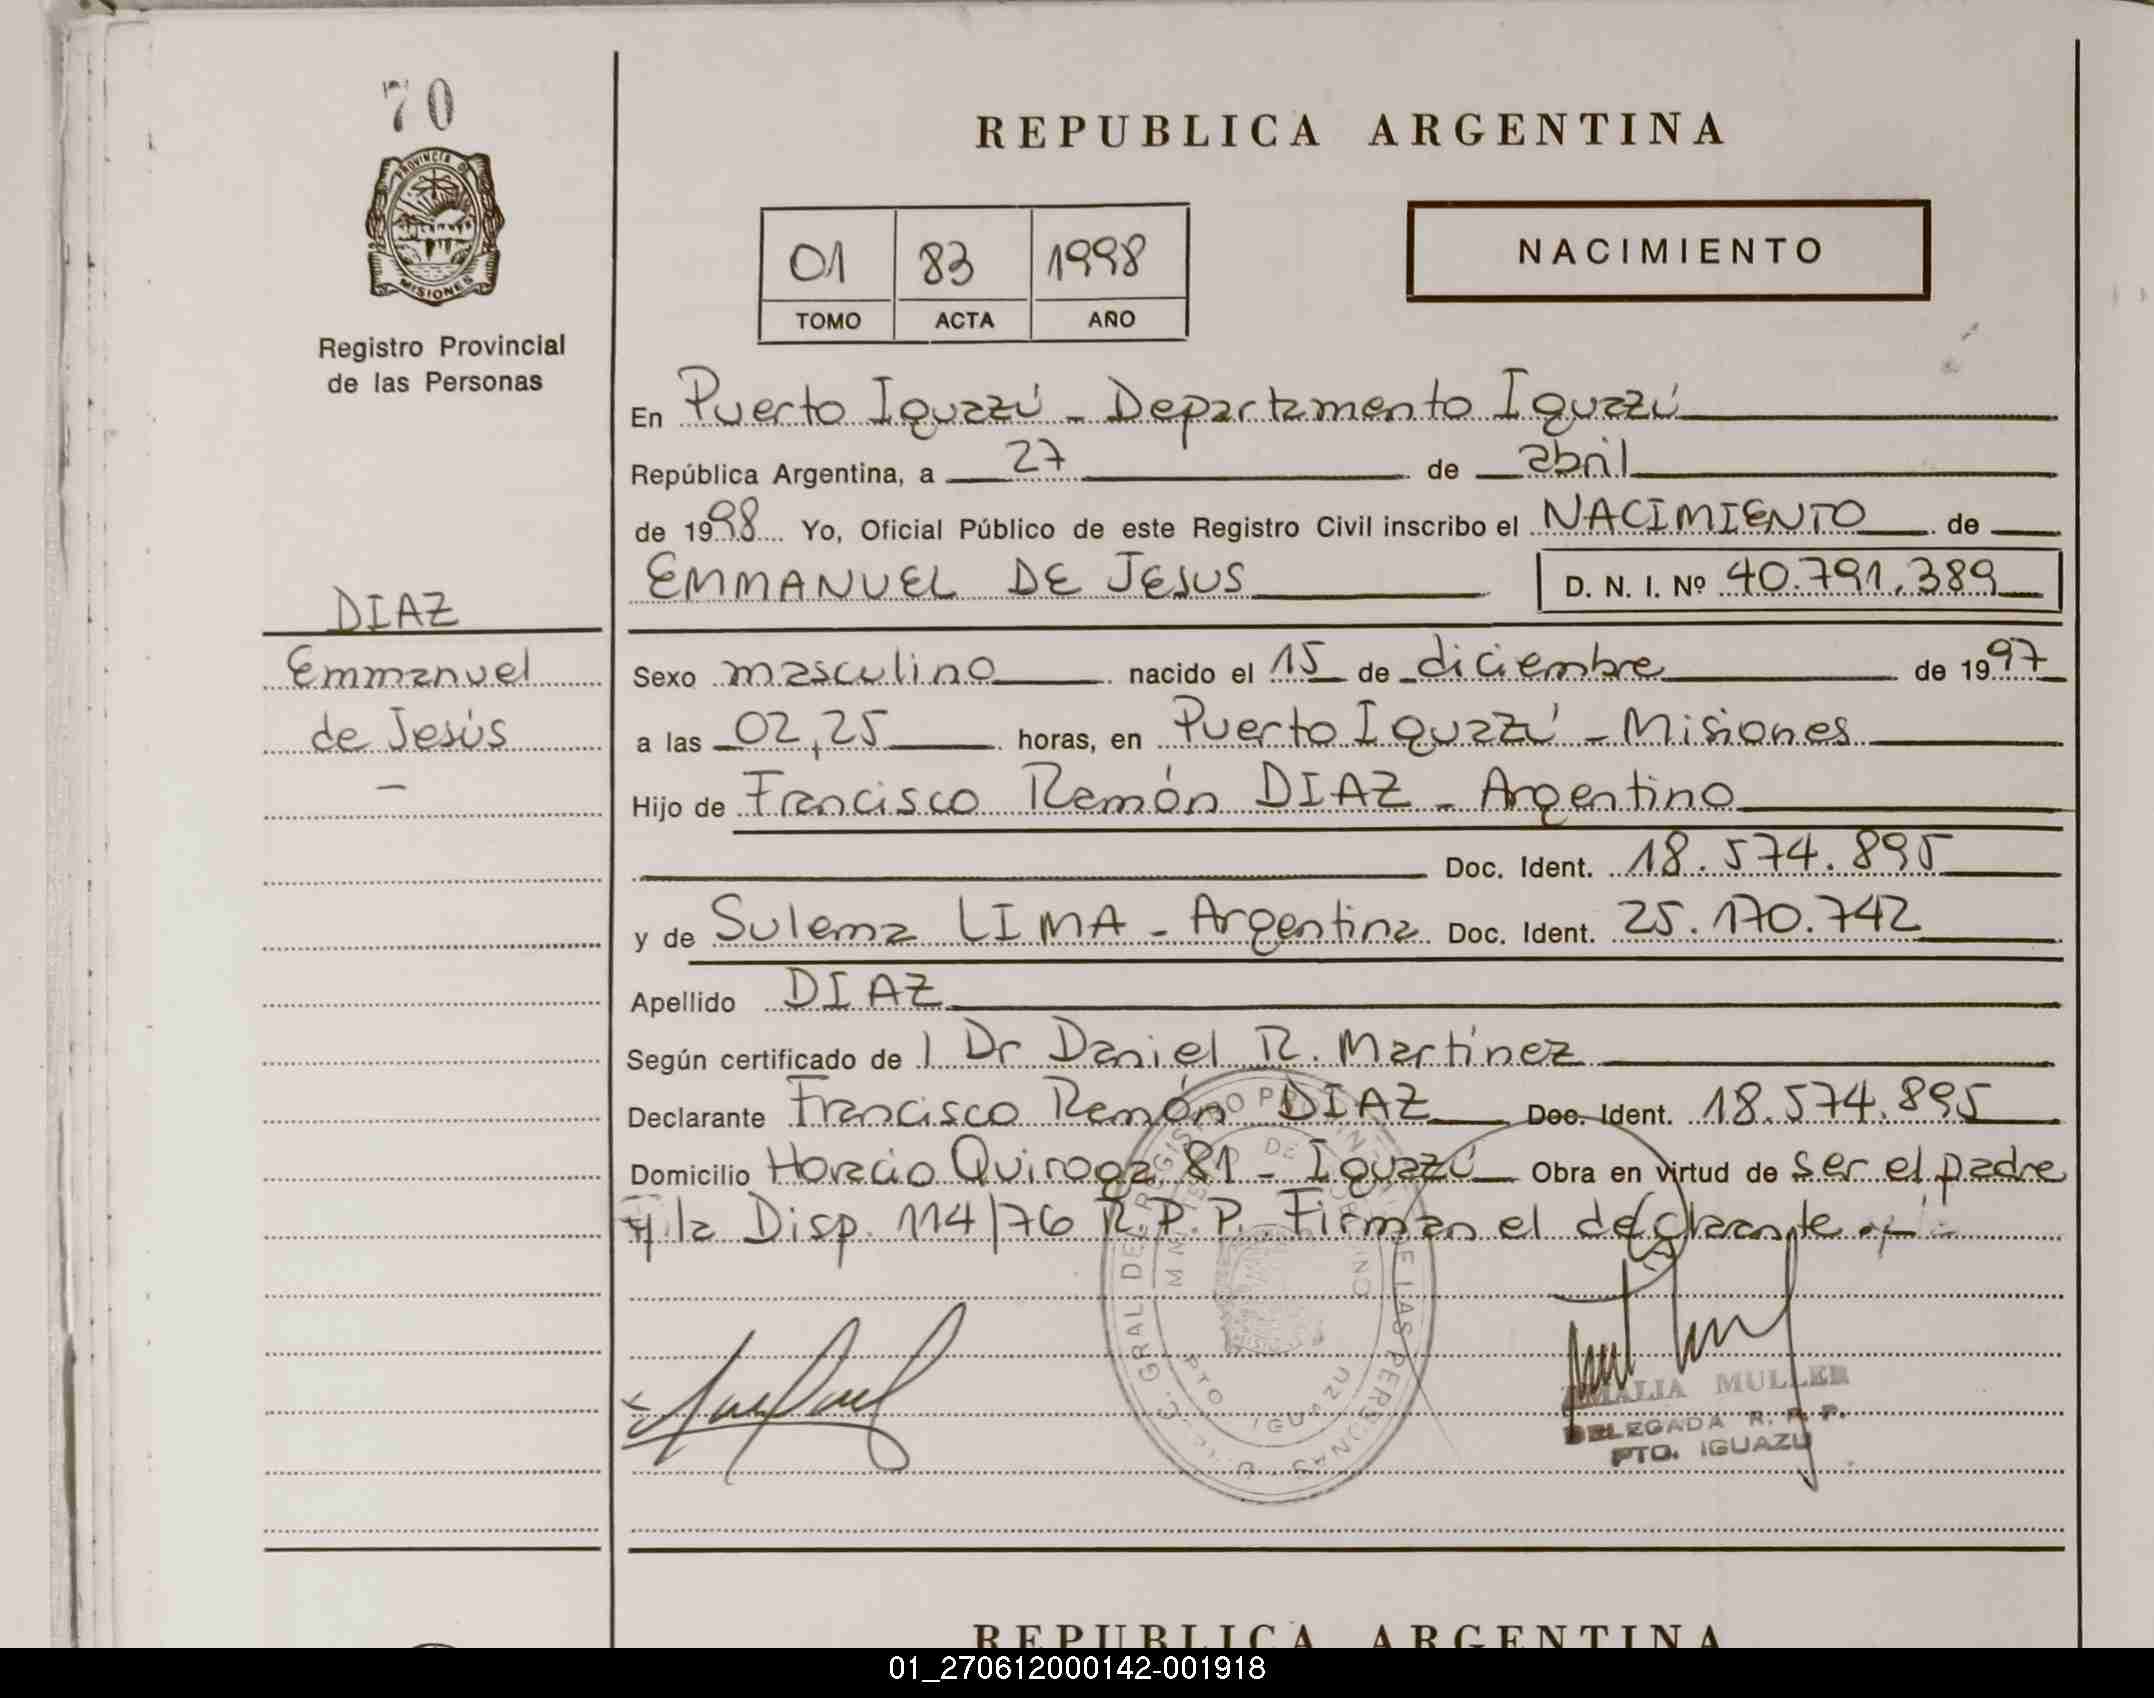 70
PROVINCIA DE
MISIONES
Registro Provincial
de las Personas
DIAZ
Emmanuel
de Jesús
REPUBLICA ARGENTINA
01 83 1998
TOMO ACTA AÑO
NACIMIENTO
En Puerto Iguazú - Departamento Iguazú
República Argentina, a 27 de abril
de 1998 Yo, Oficial Público de este Registro Civil inscribo el NACIMIENTO de
EMMANUEL DE JESUS D. N. I. Nº 40.791.389
Sexo masculino nacido el 15 de diciembre de 1997
a las 02,25 horas, en Puerto Iguazú - Misiones
Hijo de Francisco Ramón DIAZ - Argentino
Doc. Ident. 18.574.895
y de Sulema LIMA - Argentina Doc. Ident. 25.170.742
Apellido DIAZ
Según certificado de l Dr Daniel R. Martínez
Declarante Francisco Ramón DIAZ Doc. Ident. 18.574.895
Domicilio Horacio Quiroga 81 - Iguazú Obra en virtud de ser el padre
y la Disp. 114/76 R.P.P. Firman el declarante
PTO IGUAZU
AMALIA MULLER
DELEGADA R. P. P.
PTO. IGUAZU
REPUBLICA ARGENTINA
01_270612000142-001918